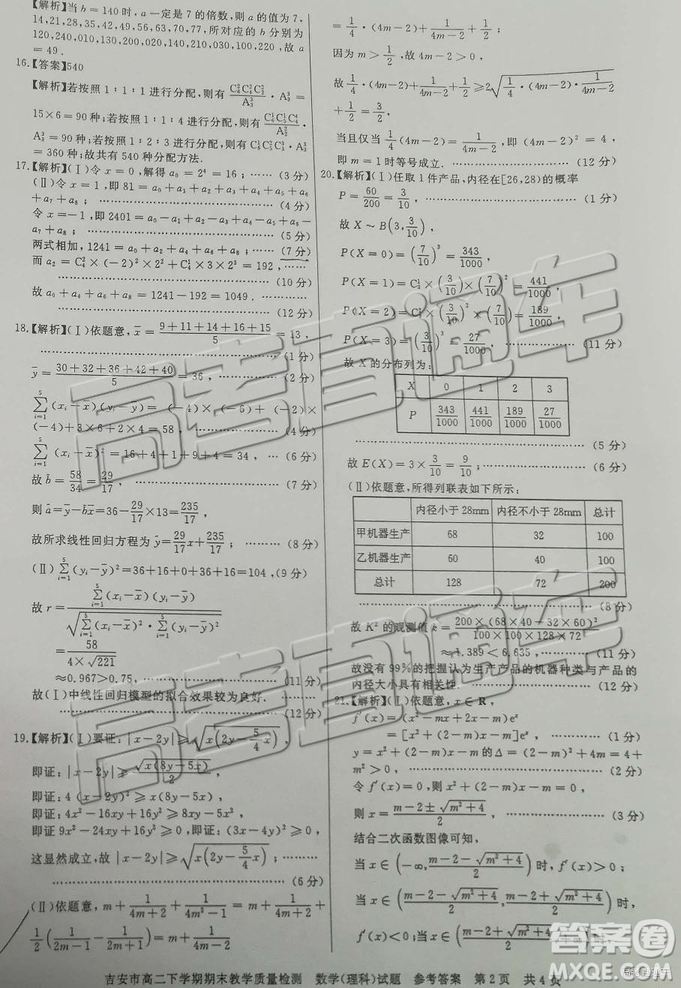 【解析】当 b = 140 时, a 一定是 7 的倍数, 则 a 的值为 7,
14,21,28,35,42,49,56,63,70,77, 所对应的 b 分别为
240,010,130,200,020,140,210,030,100,220, 故 a
= 49.
16.【答案】540
【解析】若按照 1:1:1 进行分配, 则有
15×6 = 90 种; 若按照
= 90 种; 若按照 1:2:3 进行分配, 则有
= 360 种; 故共有 540 种分配方法.
17.【解析】(Ⅰ)令 x = 0, 解得 a₀ = 2⁴ = 16; ……(3 分)
(Ⅱ)令 x = 1, 即 81 = a₀ + a₁ + a₂ + a₃ + a₄ + a₅ + a₆
+ a₇ + a₈; ……(4 分)
令 x = −1, 即 2401 = a₀ − a₁ + a₂ − a₃ + a₄ − a₅ +
a₆ − a₇ + a₈; ……(5 分)
两式相加, 1241 = a₀ + a₂ + a₄ + a₆ + a₈; ……(7 分)
……(10 分)
故 a₀ + a₄ + a₆ + a₈ = 1241 − 192 = 1049. ……
……(12 分)
18.【解析】(Ⅰ)依题意, x̄ = (9+11+14+16+15)/5 = 13,
ȳ = (30+32+36+42+40)/5 = 36, ……(2 分)
∑(xᵢ−x̄)(yᵢ−ȳ) = (−4)×(−6)+(−2)
×(−4)+3×6+2×4 = 58,
∑(xᵢ−x̄)² = 16+4+1+9+4 = 34, ……(6 分)
故 b̂ = 58/34 = 29/17; ……(7 分)
则 â = ȳ − b̂x̄ = 36 − 29/17 × 13 = 235/17,
故所求线性回归方程为 ŷ = 29/17 x + 235/17; ……(8 分)
(Ⅱ)∑(yᵢ−ȳ)² = 36+16+0+36+16 = 104, ……(9 分)
故 r = ∑(xᵢ−x̄)(yᵢ−ȳ) / √(∑(xᵢ−x̄)²·∑(yᵢ−ȳ)²)
= 58/(4×√221)
≈ 0.967 > 0.75, ……(11 分)
故(Ⅰ)中线性回归模型的拟合效果较为良好. ……
……(12 分)
19.【解析】(Ⅰ)要证: |x−2y| ≥ √(x(2y−5/4 x)),
即证: |x−2y| ≥ √(x(8y−5x))/2,
即证: 4(x−2y)² ≥ x(8y−5x),
即证: 4x²−16xy+16y² ≥ 8xy−5x²,
即证 9x²−24xy+16y² ≥ 0, 即证: (3x−4y)² ≥ 0,
这显然成立, 故 |x−2y| ≥ √(x(2y−5/4 x)); ……
……(6 分)
(Ⅱ)依题意, m + 1/(4m+2) + 1/(4m²−1) = m + 1/(4m+2) +
1/2 (1/(2m−1) − 1/(2m+1)) = m + 1/(4m−2)
= 1/4·(4m−2) + 1/(4m−2) + 1/2,
因为 m > 1/2, 故 4m−2 > 0,
故 1/4·(4m−2) + 1/(4m−2) + 1/2 ≥ 2√(1/4·(4m−2)·1/(4m−2))
+ 1/2 = 3/2,
当且仅当 1/4(4m−2) = 1/(4m−2), 即 (4m−2)² = 4,
即 m = 1 时等号成立. ……(12 分)
20.【解析】(Ⅰ)任取 1 件产品, 内径在[26,28)的概率
P = 60/200 = 3/10, ……(1 分)
故 X ~ B(3, 3/10),
P(X = 0) = (7/10)³ = 343/1000
故 X 的分布列为:
X 0 1 2 3
P 343/1000 441/1000 189/1000 27/1000
……(5 分)
故 E(X) = 3 × 3/10 = 9/10; ……(6 分)
(Ⅱ)依题意, 所得列联表如下所示:
内径小于 28mm 内径不小于 28mm 总计
甲机器生产 68 32 100
乙机器生产 60 40 100
总计 128 72 200
……(8 分)
故 K² 的观测值 k = 200×(68×40−32×60)²/(100×100×128×72)
≈ 1.389 < 6.635, ……(11 分)
故没有 99% 的把握认为生产产品的机器种类与产品的
内径大小具有相关性. ……(12 分)
21.【解析】(Ⅰ)依题意, x ∈ R,
f′(x) = (x²−mx+2x−m)eˣ
= [x²+(2−m)x−m]eˣ; ……(1 分)
y = x²+(2−m)x−m 的 Δ = (2−m)²+4m = 4+
m² > 0,
令 f′(x) = 0,
则 x = (m−2±√(m²+4))/2, ……(3 分)
结合二次函数图像可知,
当 x ∈ (−∞, (m−2−√(m²+4))/2) 时, f′(x) > 0;
吉安市高二下学期期末教学质量检测 数学(理科)试题 参考答案 第 2 页 共 4 页
高考直通车
高考直通车